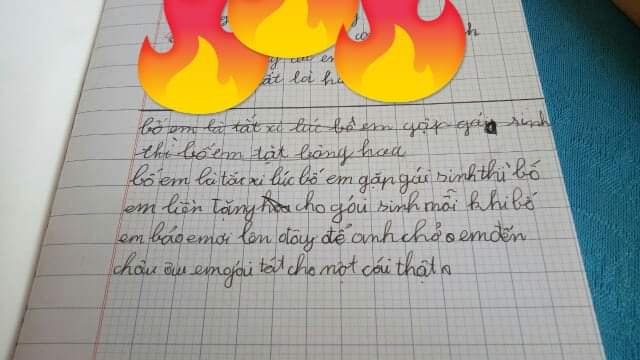 h
y em
ất là h
bố em là tắt xi lúc bố em gặp gái sinh
thì bố em tặt bòng hau
bố em là tắc xi lúc bố em gặp gái sinh thì bố
em liền tăng cho gói sinh mỗi khi bố
em bảo em ơi lên đây để anh chở em đến
châu âu em gái tát cho một cái thật